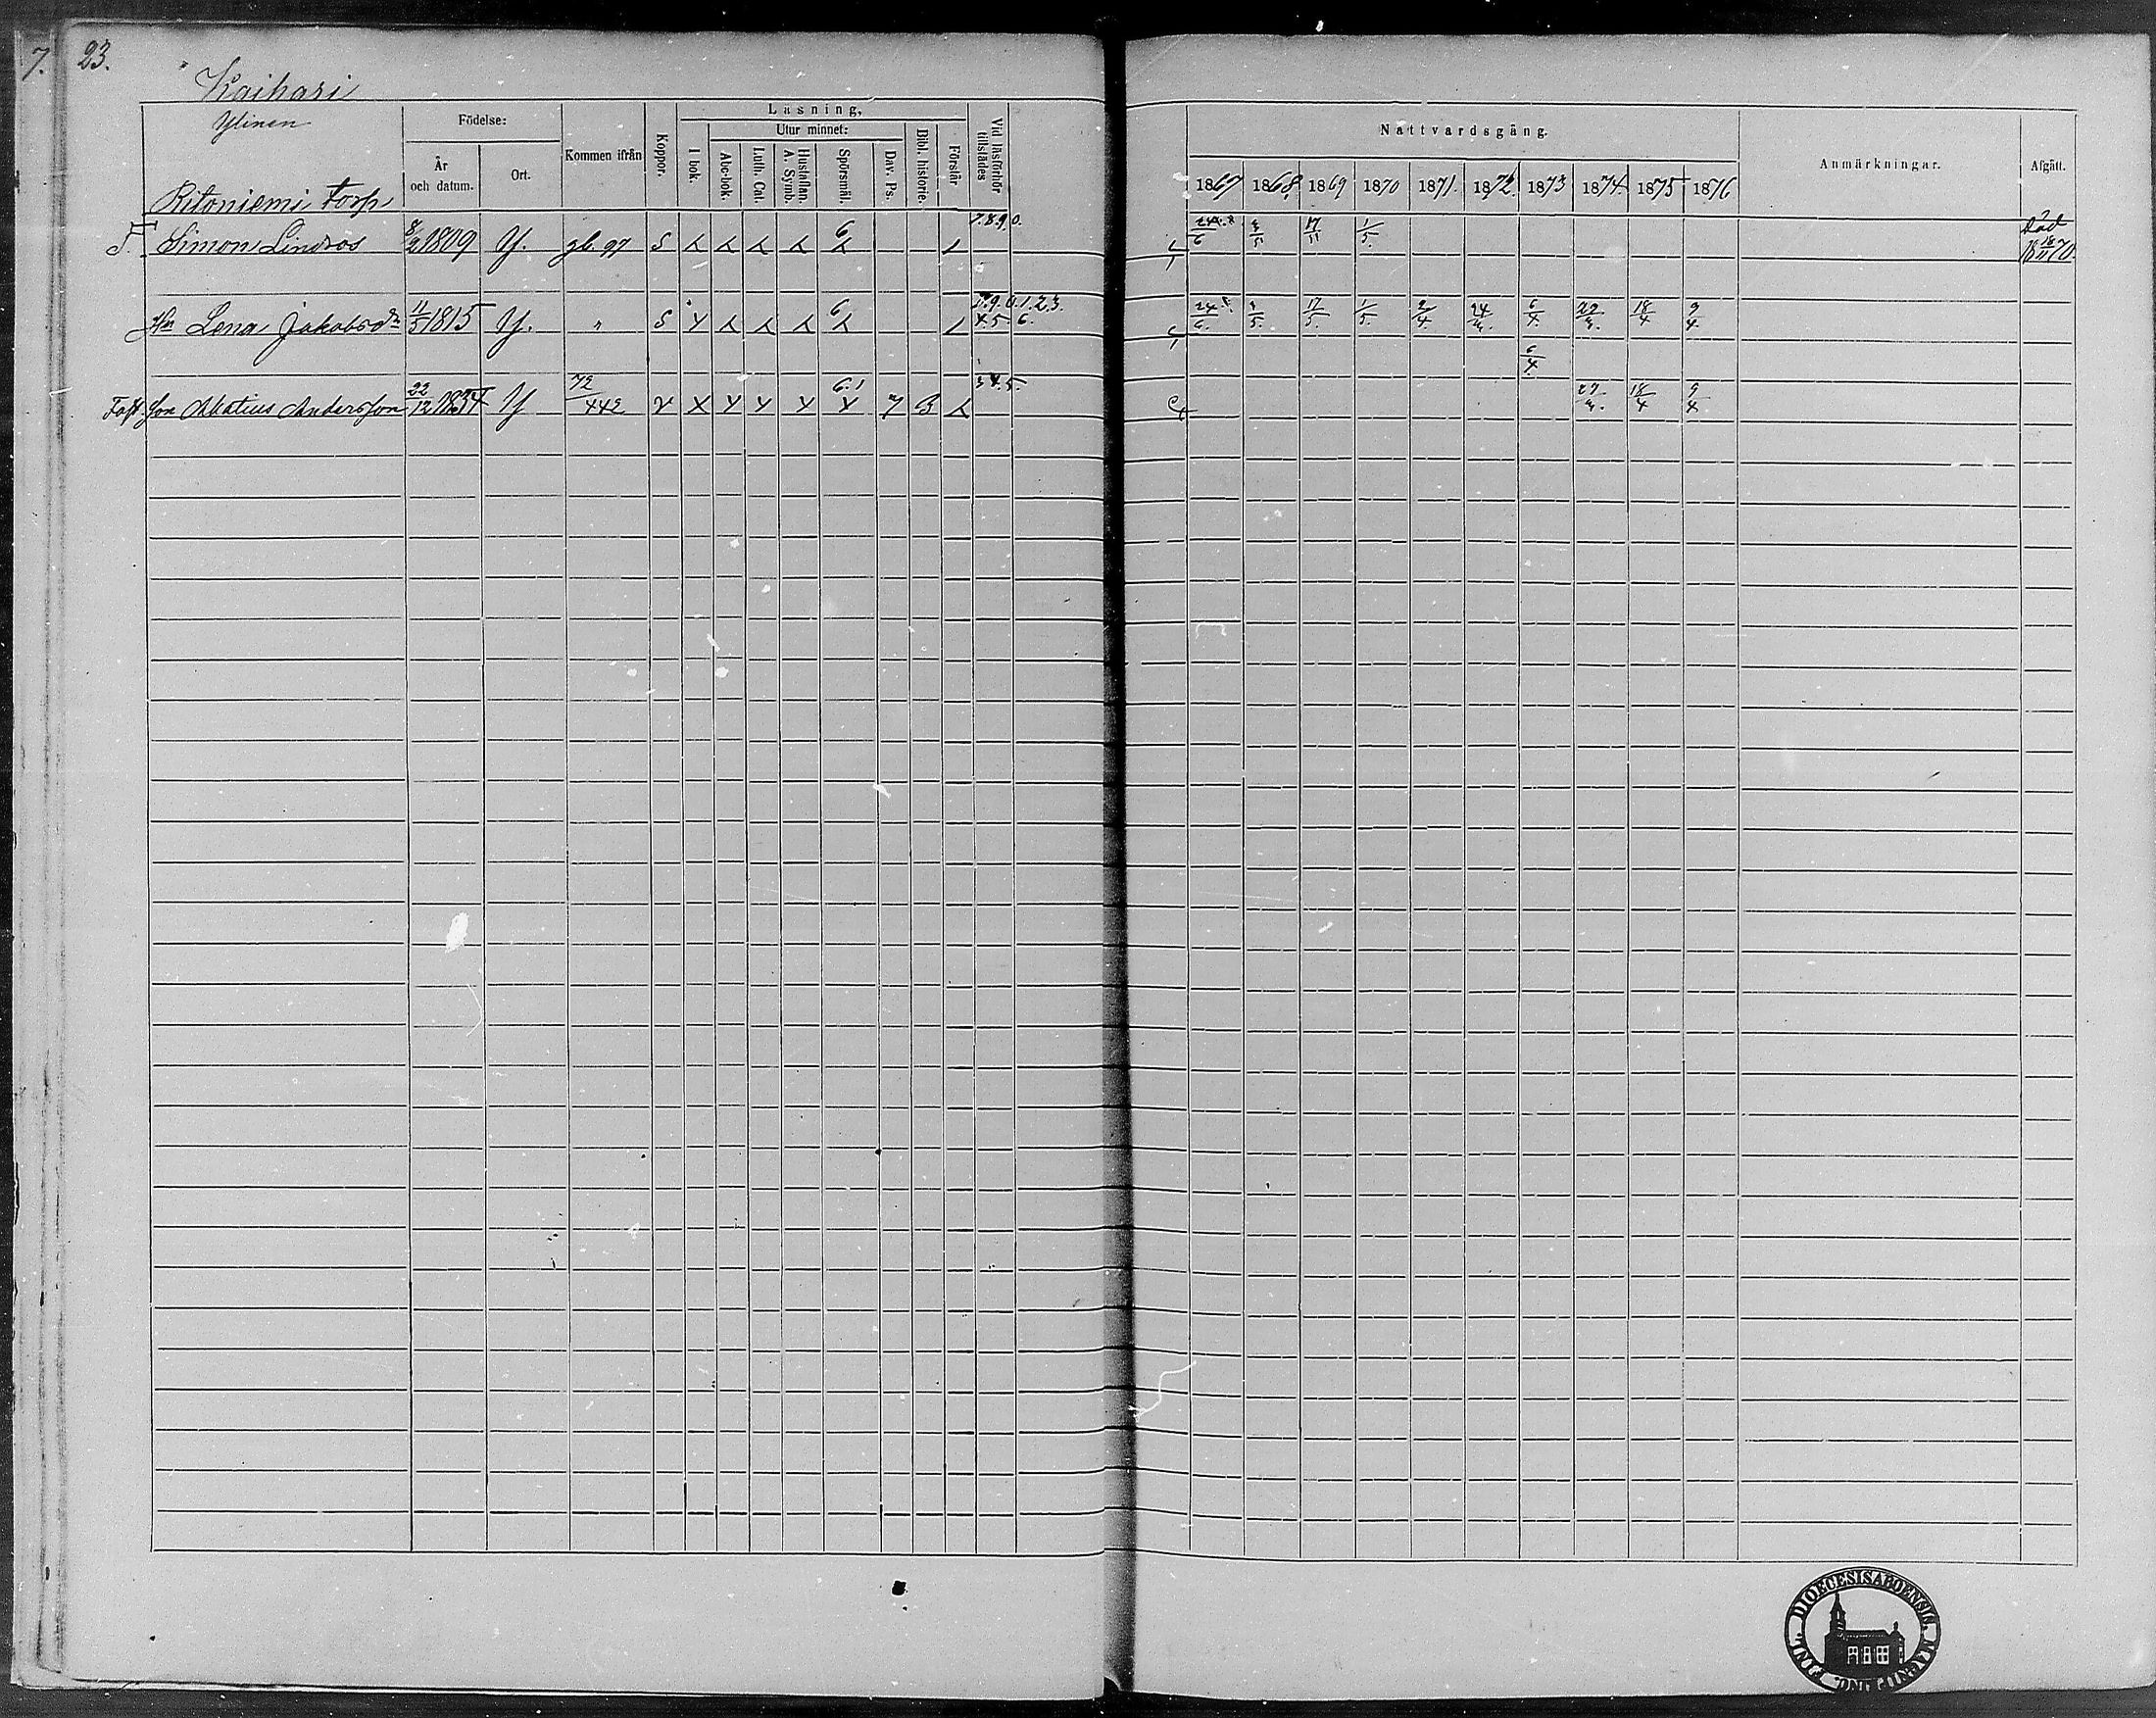 7. 23.
Kaihari
Ylinen
Födelse:
År och datum.
Ort.
Kommen ifrån
Koppor.
Läsning,
I bok.
Utur minnet:
Abc-bok.
Luth. Cat.
Hustaflan. A. Symb.
Spörsmål.
Dav. Ps.
Bibl. historie.
Förstår
Vid läsförhör tillstädes
Nattvardsgång.
1867 1868 1869 1870 1871. 1872. 1873 1874 1875 1876
Anmärkningar.
Afgått.
Ritoniemi Torp
T. Simon Lindroos 8/2 1809 Y. gb. 97 S 6 7.8.9.0. 1/5. Död 18 18/11 70.
Hu Lena Jakobsdr 11/5 1815 Y. " S 6 0.1.2.3. 4.5.6. 24/6. 1/5. 17/5. 1/5. 2/4 6/4. 18/4 9/4.
6/4
son Andersson 22/12 Y 72/442 v 6.1 7 3 3.4.5. 18/4 9/4
FINL. DIOECESIS ABOENSIS MAGNI PRINC.